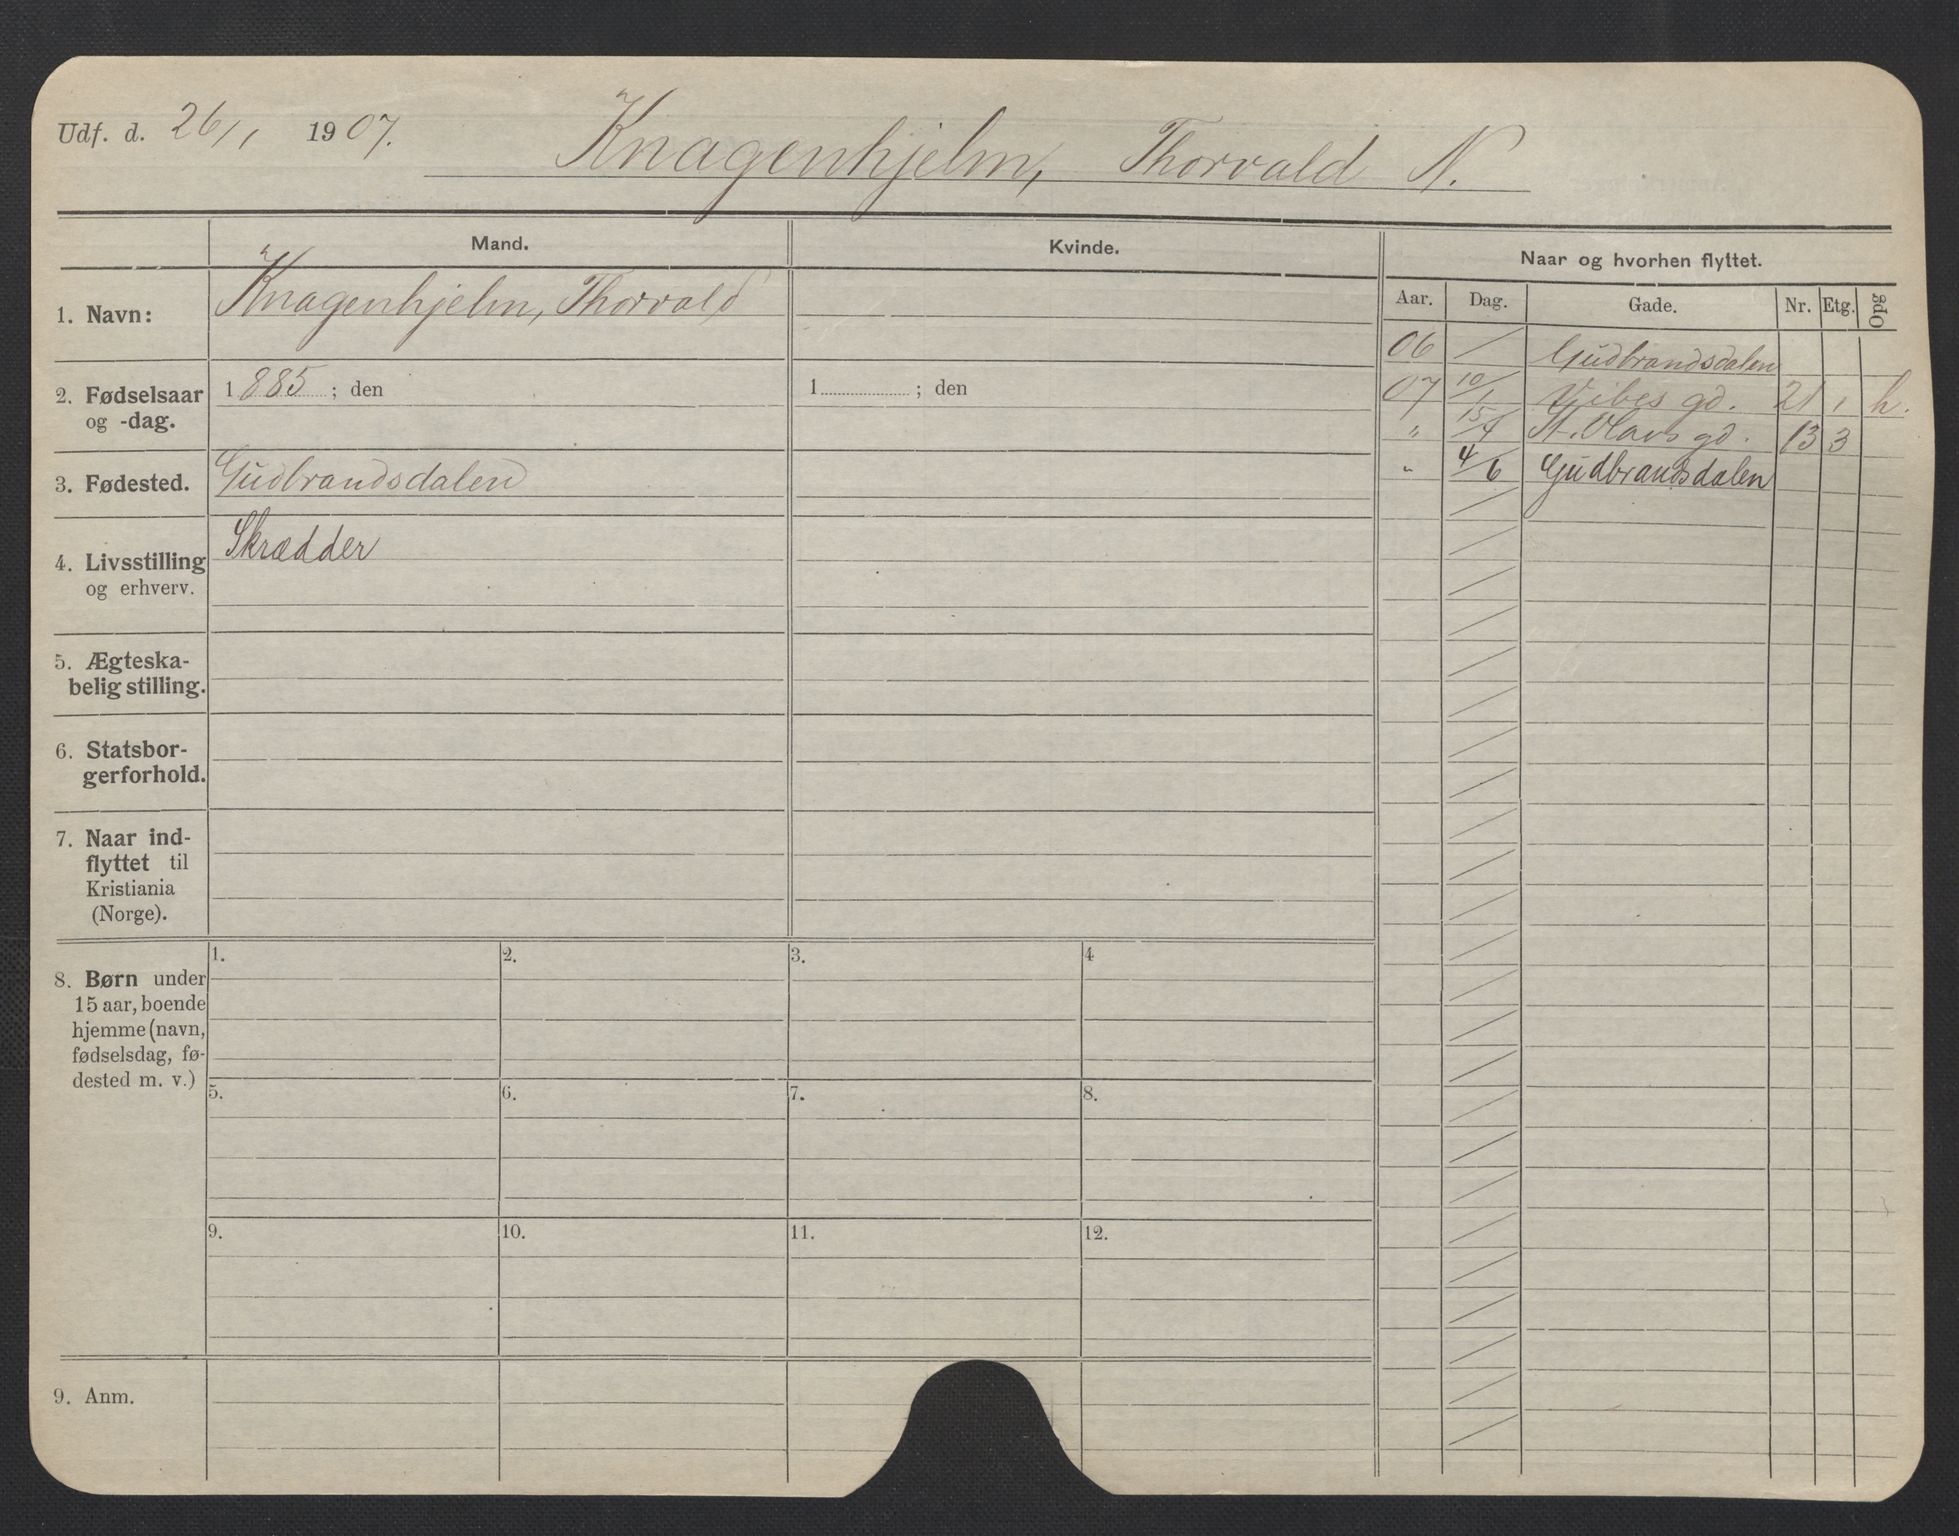 Udf. d. 26/1 1907.
Knagenhjelm, Thorvald N.
Mand.
Kvinde.
Naar og hvorhen flyttet.
Aar. Dag. Gade. Nr. Etg. Opg
1. Navn: Knagenhjelm, Thorvald
2. Fødselsaar
og -dag.
1885 ; den
1 ; den
3. Fødested. Gudbrandsdalen
4. Livsstilling
og erhverv.
Skrædder
5. Ægteska-
belig stilling.
6. Statsbor-
gerforhold.
7. Naar ind-
flyttet til
Kristiania
(Norge).
8. Børn under
15 aar, boende
hjemme (navn,
fødselsdag, fø-
dested m. v.)
1. 2. 3. 4
5. 6. 7. 8.
9. 10. 11. 12.
9. Anm.
06 / Gudbrandsdalen
07 10/1 Vibes gd. 21 1 h.
" 15/4 St. Olavs gd. 13 3
" 4/6 Gudbrandsdalen